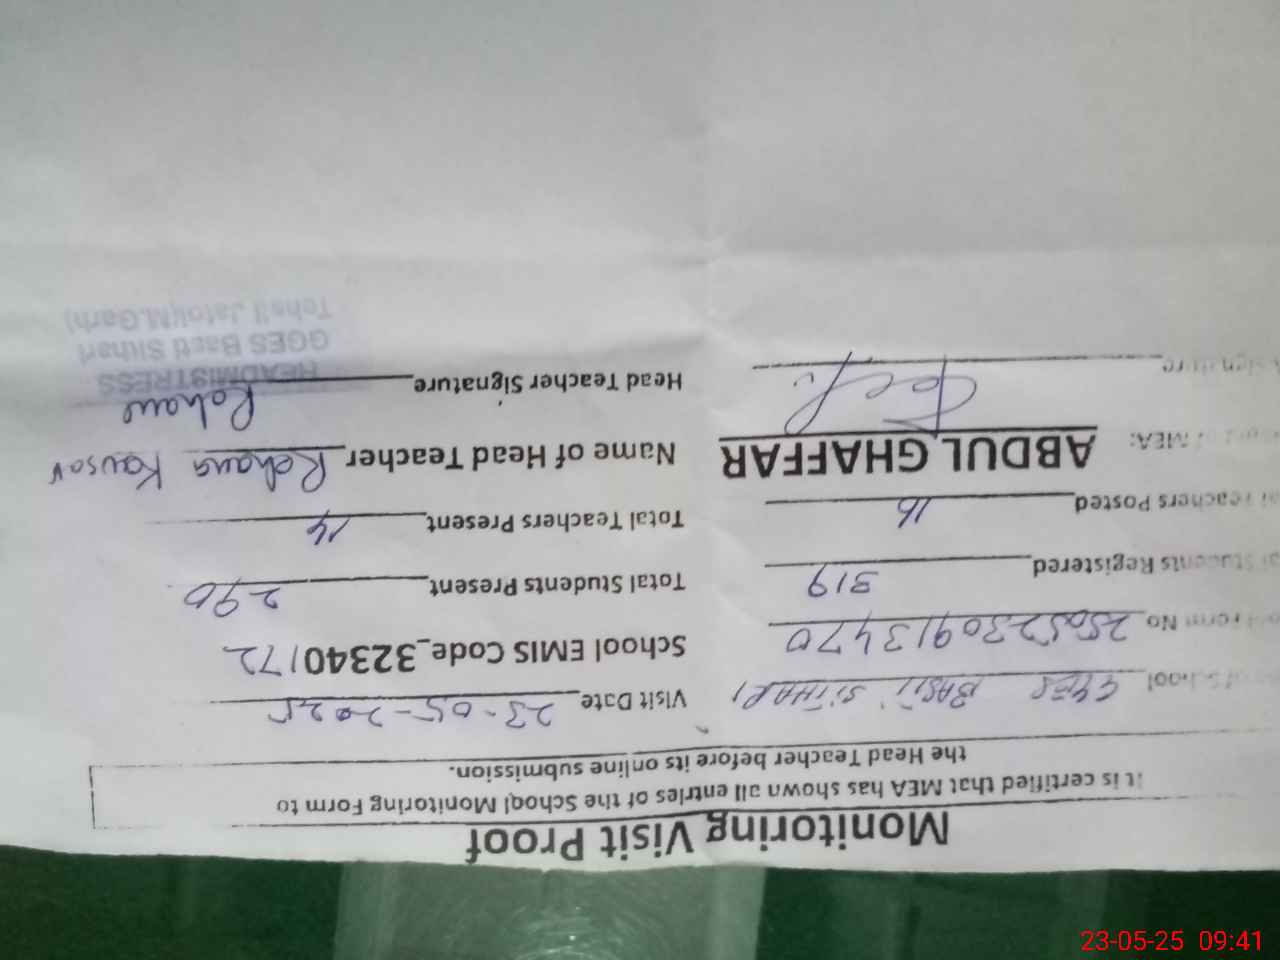 Monitoring Visit Proof
it is certified that MEA has shown all entries of the School Monitoring Form to
the Head Teacher before its online submission.
School GGES BASTI SITHARI Visit Date 23-05-2025
Form No 2505230913470 School EMIS Code_32340172
Students Registered 319 Total Students Present 290
Teachers Posted 16 Total Teachers Present 14
MEA: ABDUL GHAFFAR Name of Head Teacher Rehana Kausar
Head Teacher Signature
HEADMISTRESS
GGES Basti Sithari
Tehsil Jatoi(M.Garh)
23-05-25 09:41